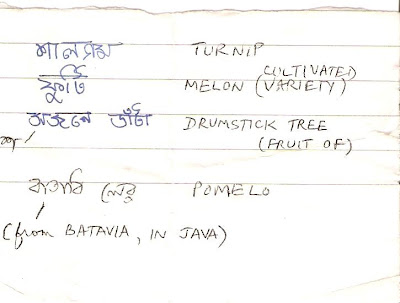 শালগম TURNIP
CULTIVATED
ফুটি MELON (VARIETY)
সজনে ডাঁটা DRUMSTICK TREE
(FRUIT OF)
বাতাবি লেবু POMELO
(from BATAVIA, IN JAVA)